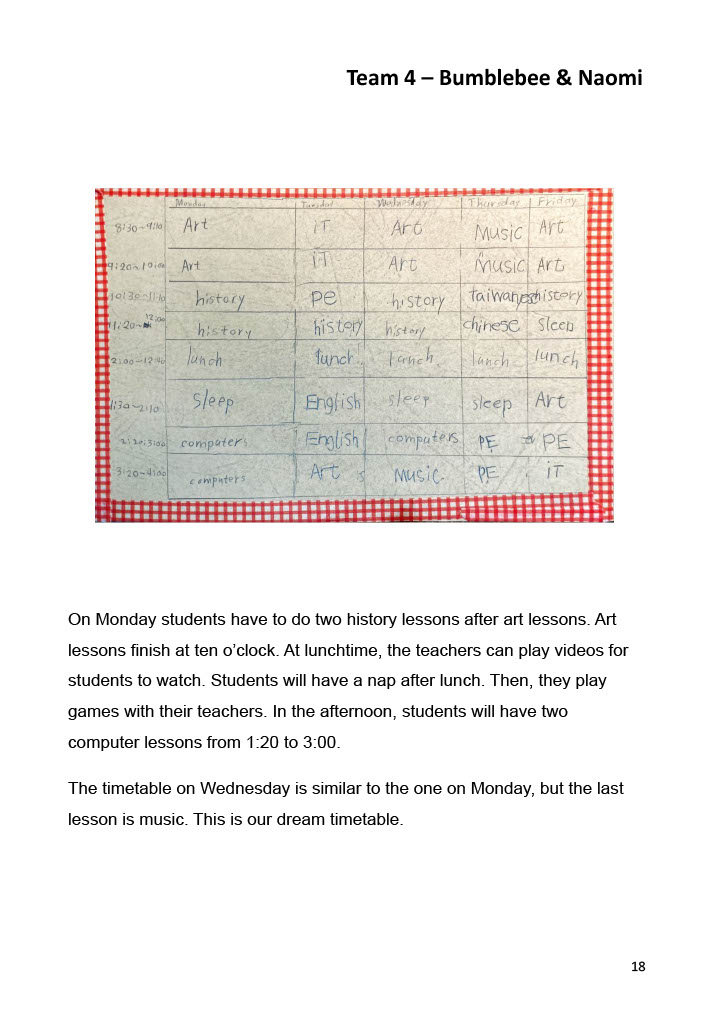 Team 4 – Bumblebee & Naomi
Monday Tuesday Wednesday Thursday Friday
8:30~9:10 Art iT Art Music Art
9:20~10:00 Art iT Art Music Art
10:30~11:10 history pe history taiwanese history
11:20~12:00 history history history chinese sleep
12:00~12:40 lunch lunch lunch lunch lunch
1:30~2:10 sleep English sleep sleep Art
2:20~3:00 computers English computers PE PE
3:20~4:00 computers Art Music PE iT
On Monday students have to do two history lessons after art lessons. Art
lessons finish at ten o’clock. At lunchtime, the teachers can play videos for
students to watch. Students will have a nap after lunch. Then, they play
games with their teachers. In the afternoon, students will have two
computer lessons from 1:20 to 3:00.
The timetable on Wednesday is similar to the one on Monday, but the last
lesson is music. This is our dream timetable.
18